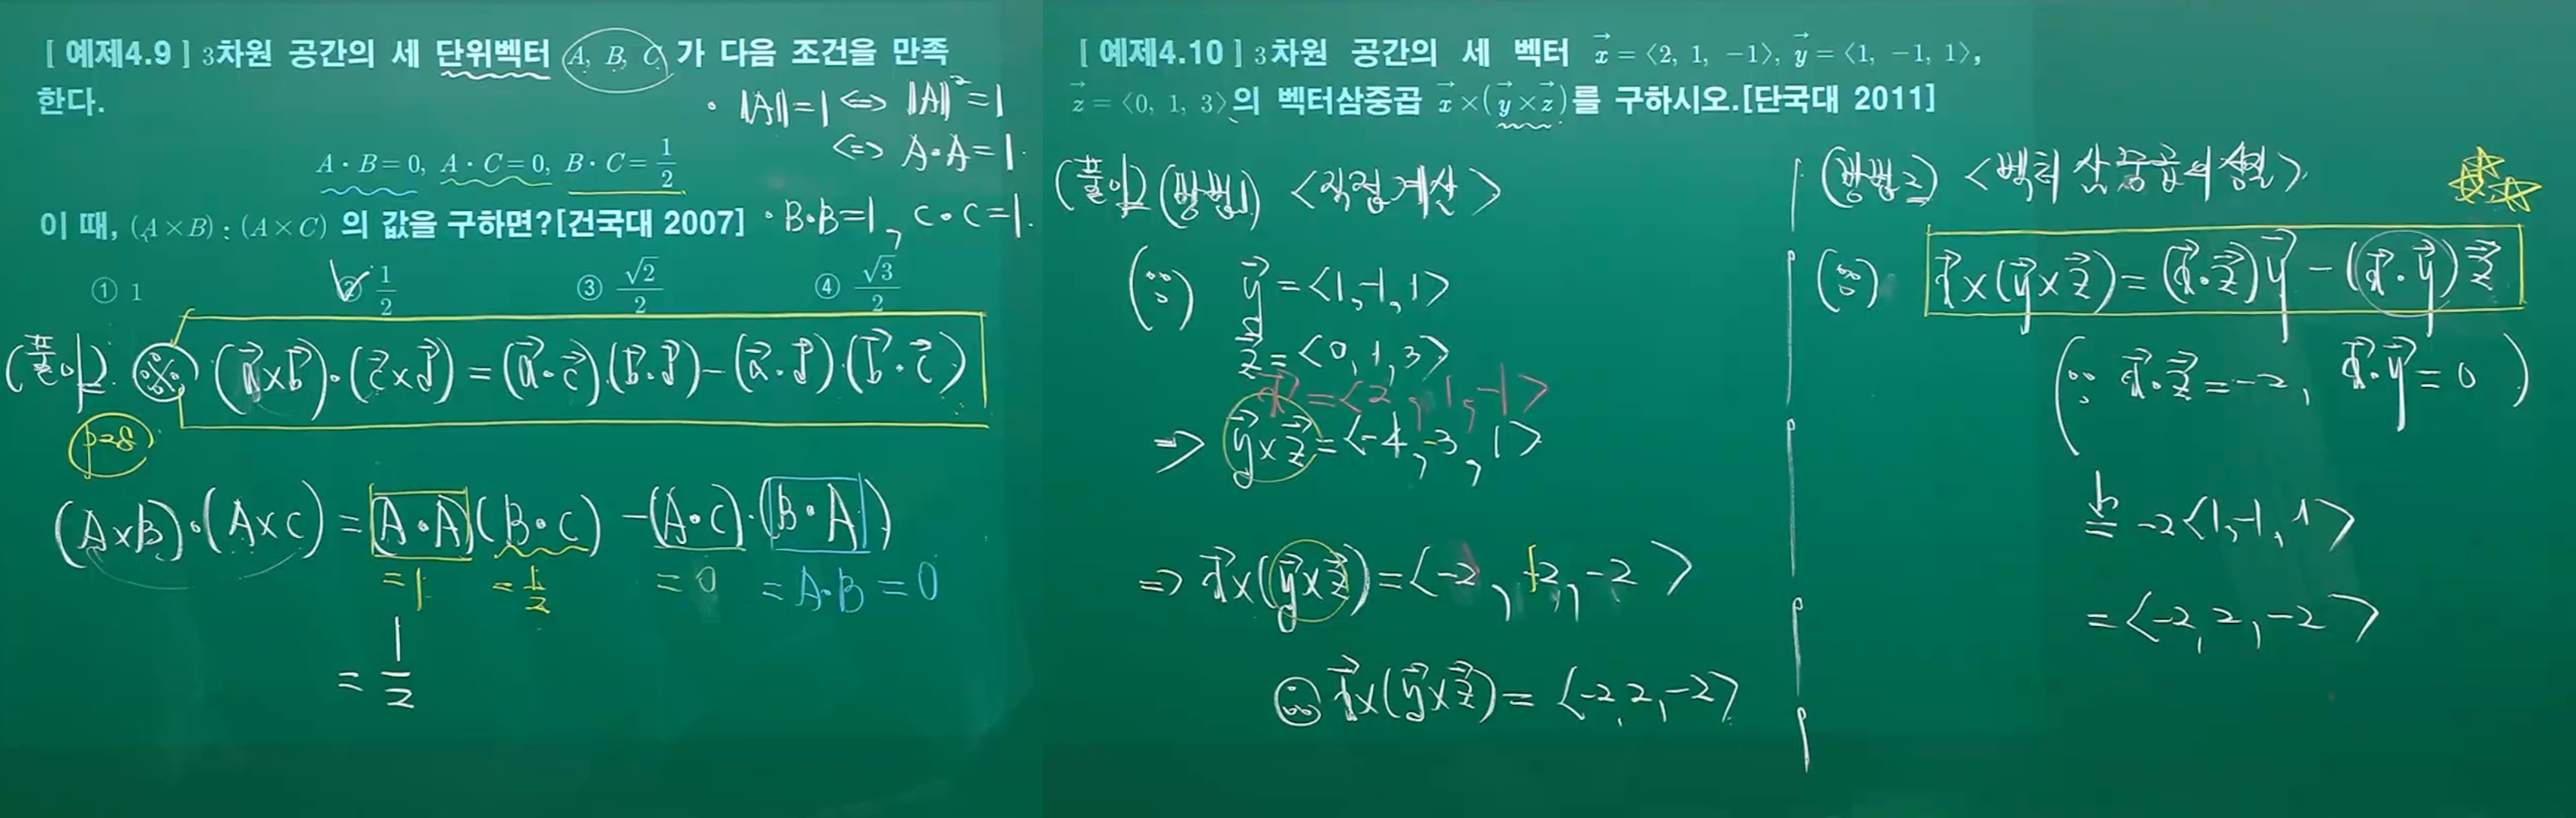 [ 예제4.9 ] 3차원 공간의 세 단위벡터 A, B, C 가 다음 조건을 만족
한다.
· ‖A‖=1 ⇔ ‖A‖²=1
⇔ A·A=1.
A·B=0, A·C=0, B·C=1/2
이 때, (A×B) : (A×C) 의 값을 구하면?[건국대 2007]
· B·B=1, C·C=1.
① 1 ② 1/2 ③ √2/2 ④ √3/2
(풀이) (a×b)·(c×d)=(a·c)·(b·d)-(a·d)·(b·c)
p=8
(A×B)·(A×C)=(A·A)(B·C)-(A·C)·(B·A)
=1 =1/2 =0 =A·B=0
=1/2
[ 예제4.10 ] 3차원 공간의 세 벡터 x=⟨2, 1, -1⟩, y=⟨1, -1, 1⟩,
z=⟨0, 1, 3⟩의 벡터삼중곱 x×(y×z)를 구하시오.[단국대 2011]
(풀이) (방법1) <직접계산>
(∵) y=<1,-1,1>
z=<0,1,3>
x=<2,1,-1>
⇒ y×z=<-4,-3,1>
⇒ x×(y×z)=<-2, +2, -2>
∴ x×(y×z)=<-2,2,-2>
(방법2) <벡터 삼중곱의 성질>
(∵) x×(y×z)=(x·z)y-(x·y)z
(∵ x·z=-2, x·y=0)
= -2<1,-1,1>
=<-2,2,-2>